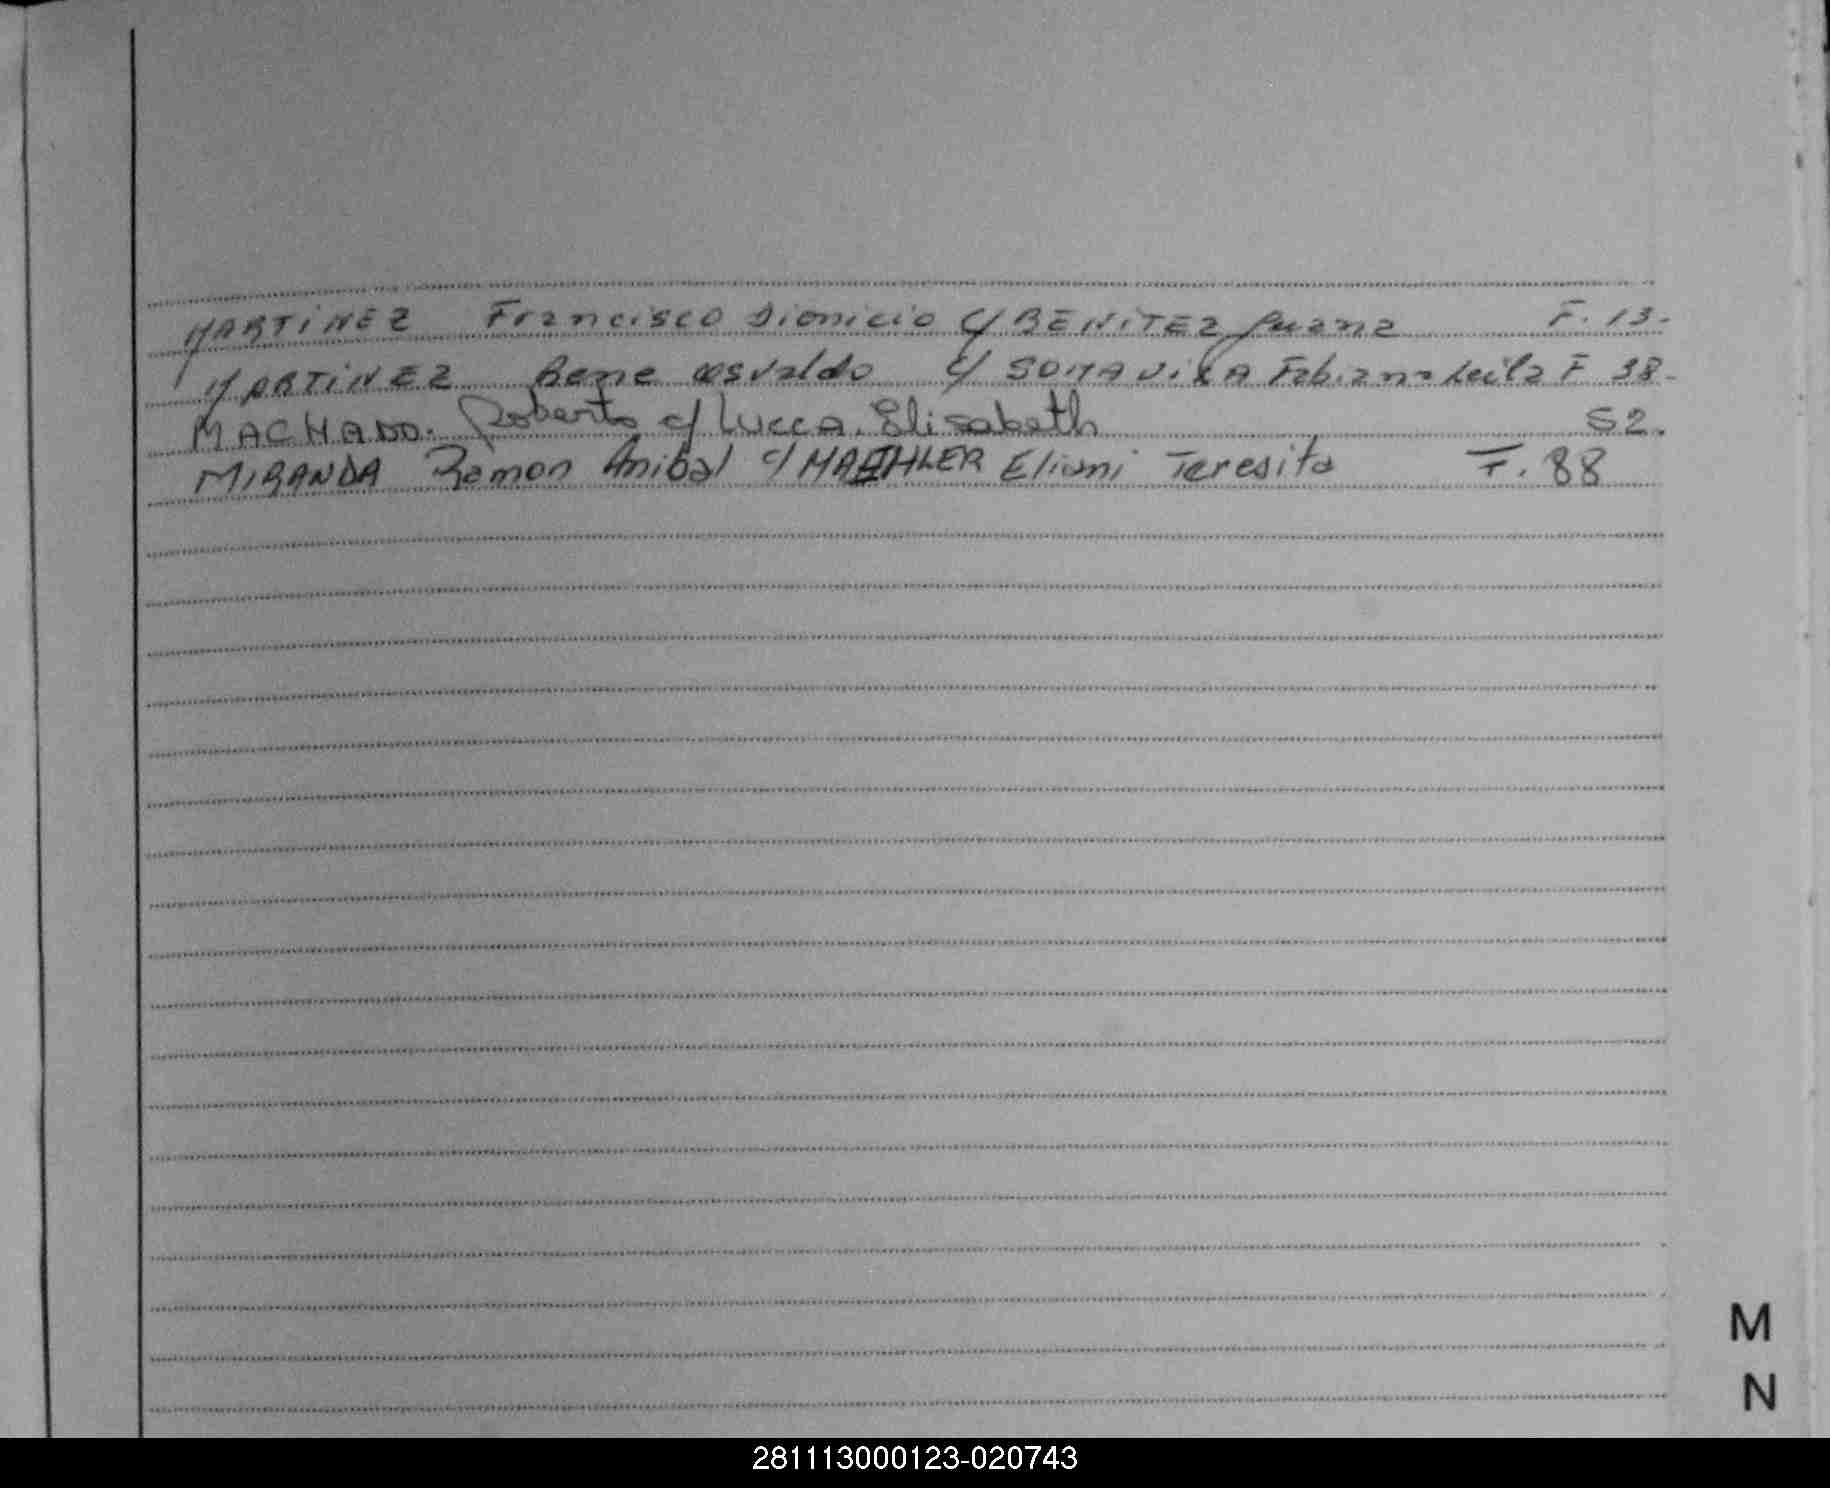 MARTINEZ Francisco Dionicio c/ BENITEZ Juana F. 13.
MARTINEZ Rene Osvaldo c/ SOMAVILA Fabiana Leila F 38.
MACHADO. Roberto c/ Lucca. Elisabeth 52.
MIRANDA Ramon Anibal c/ MAEHLER Eliani Teresita F. 88
M
N
281113000123-020743